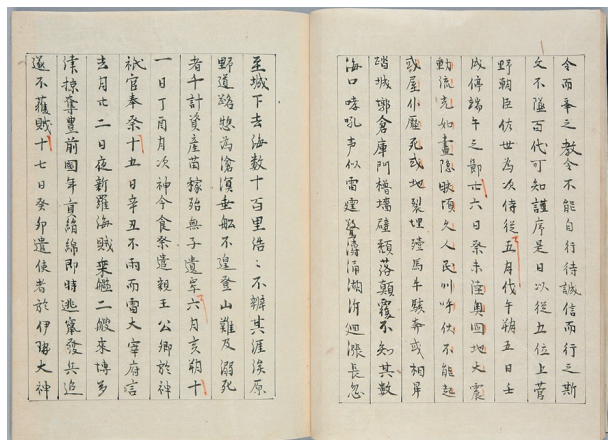 令而奉之教令不能自行待誠信而行之斯
文不墜百代可知謹序是日以從五位上菅
野朝臣佐世為次侍從五月戊午朔五日壬
戌停端午之節廿六日癸未陸奥國地大震
動流光如晝隱映頃久人民叫呼伏不能起
或屋仆壓死或地裂埋殪馬牛駭奔或相昇
踏城郭倉庫門櫓墻壁頽落顛覆不知其數
海口哮吼声似雷霆驚濤涌潮泝洄漲長忽
至城下去海數十百里浩〻不辨其涯涘原
野道路惣為滄溟乗舩不遑登山難及溺死
者千計資産苗稼殆無子遺焉六月亥朔十
一日丁酉月次神今食祭遣親王公卿於神
祇官奉祭十五日辛丑不雨而雷大宰府言
去月廿二日夜新羅海賊乗艦二艘來博多
津掠奪豊前國年貢絹綿即時逃竄發兵追
遂不獲賊十七日癸卯遣使者於伊勢大神